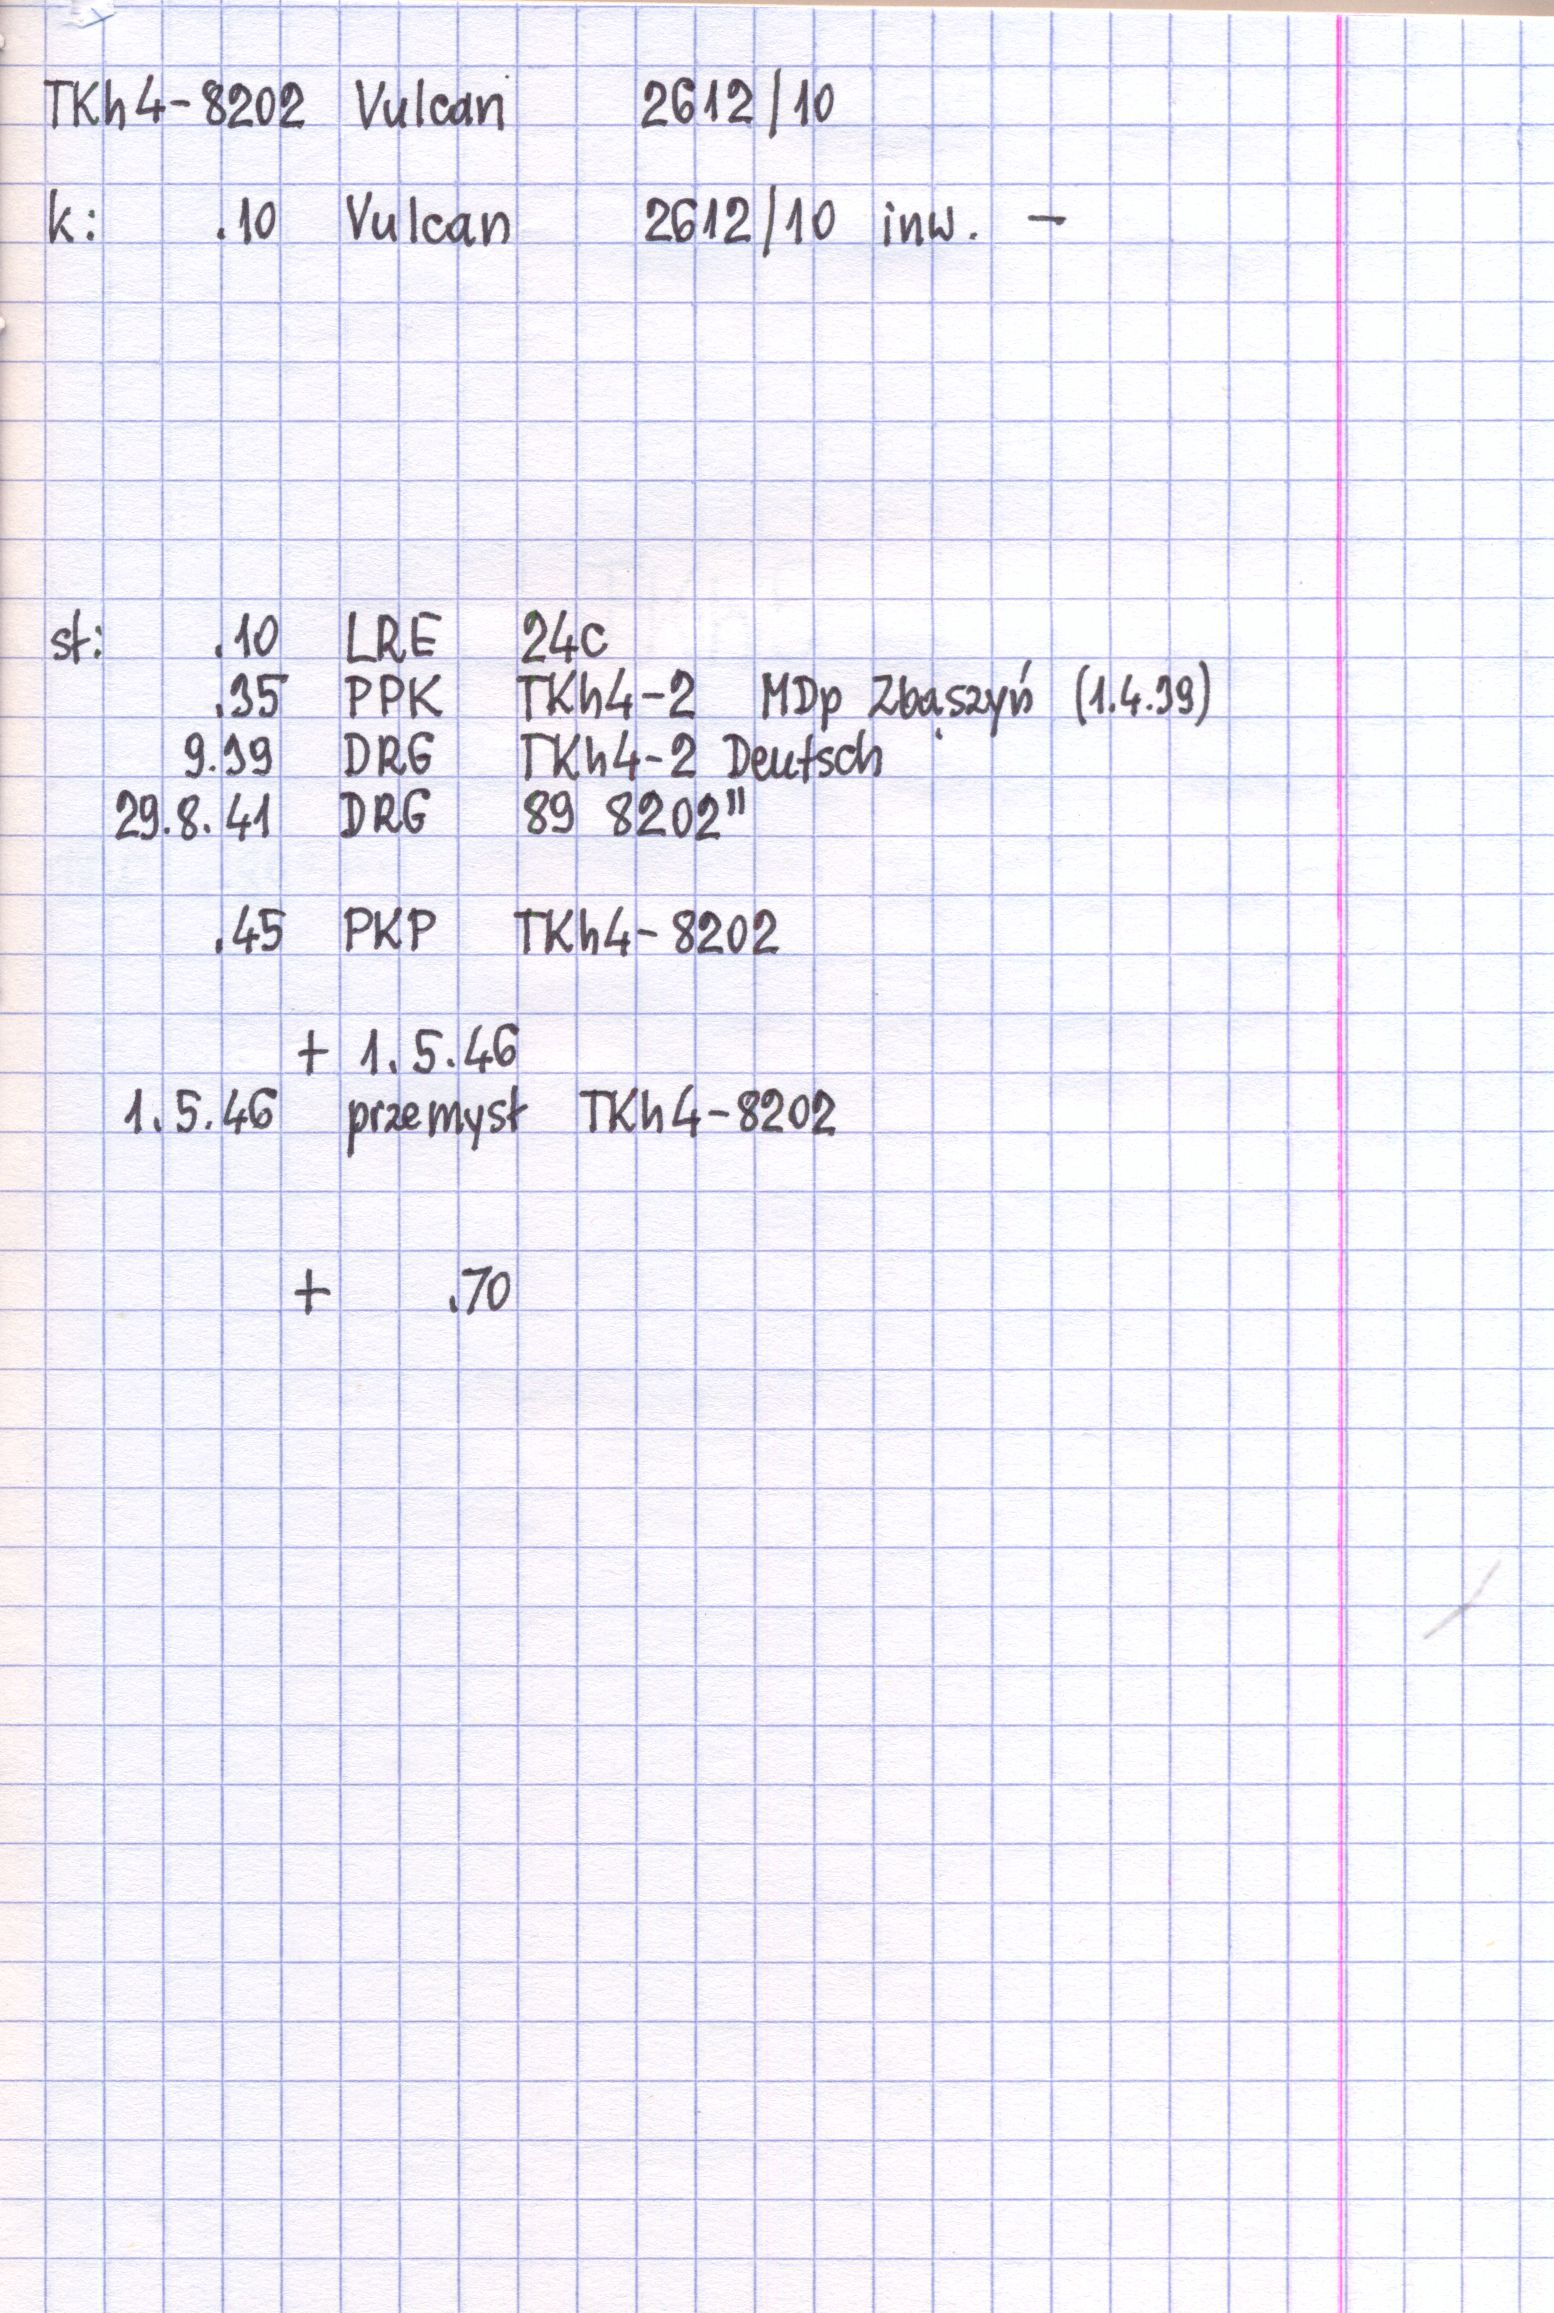 TKh4-8202 Vulcan 2612/10
k: .10 Vulcan 2612/10 inw. -
st: .10 LRE 24c
.35 PPK TKh4-2 MDp Zbąszyń (1.4.39)
9.39 DRG TKh4-2 Deutsch
29.8.41 DRG 89 8202"
.45 PKP TKh4-8202
+ 1.5.46
1.5.46 przemysł TKh4-8202
+ .70